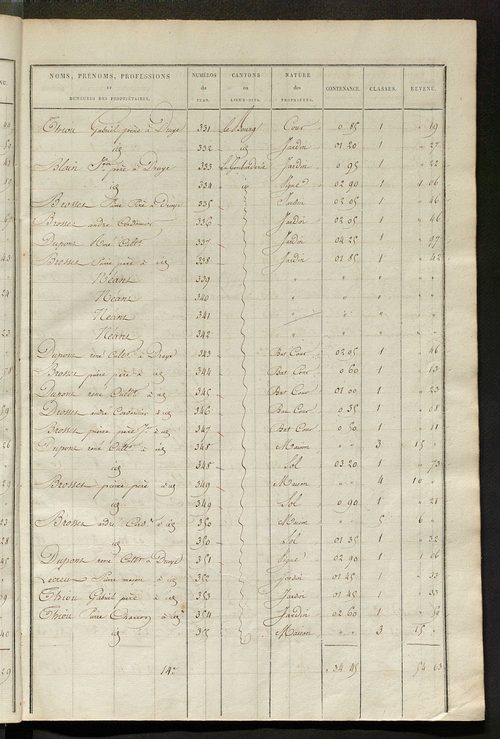 NOMS, PRÉNOMS, PROFESSIONS ET DEMEURES DES PROPRIÉTAIRES. NUMÉROS du PLAN. CANTONS ou LIEUX-DITS. NATURE des PROPRIÉTÉS. CONTENANCE. CLASSES. REVENU.
Thiou Gabriel père à Druye 331 le Bourg Cour " 85 1 " 19
id 332 id Jardin 01 20 1 " 27
Blain père à Druye 333 Jardin " 95 1 " 22
id 334 id Vigne 02 90 1 1 06
Brosset père à Druye 335 Jardin 02 05 1 " 46
Brosset andre Cordonnier 336 Jardin 02 05 1 " 46
Dupont René Cultr 337 Jardin 04 25 1 " 97
Brosset père à id 338 Jardin 01 85 1 " 42
Néant 339 " " " "
Néant 340 " " " "
Néant 341 " " "
Néant 342 " " " "
Dupont rené Cultr à Druye 343 Bas Cour 02 05 1 " 46
Brosset père à id 344 Bas Cour " 60 1 " 13
Dupont rené Cultr à id 345 Bas Cour 01 00 1 " 23
Brosset andre Cordonnier à id 346 Bas Cour " 35 1 " 08
Brosset pierre à id 347 Bas Cour " 50 1 " 11
Dupont rené Cultr à id 348 Maison " " 3 15 "
id 348 Sol 03 20 1 " 73
Brosset père à id 349 Maison " " 4 10 "
id 349 Sol " 90 1 " 21
Brosset andre Cord à id 350 Maison " " 5 6 "
id 350 Sol 01 35 1 " 32
Dupont rené Cultr à Druye 351 Vigne 02 90 1 1 06
à id 352 Jardin 01 45 1 " 33
Thiou Gabriel père à id 353 Jardin 01 45 1 " 33
Thiou Pierre à id 354 Jardin 02 60 1 " 59
id 355 Maison " " 3 15 "
34 45 54 63